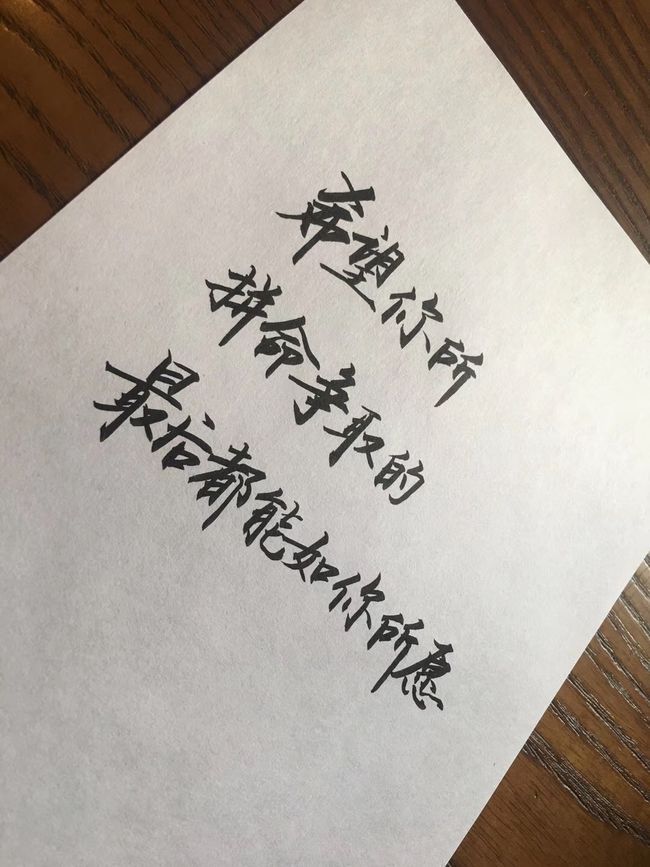 希望你所
拼命争取的
最后都能如你所愿